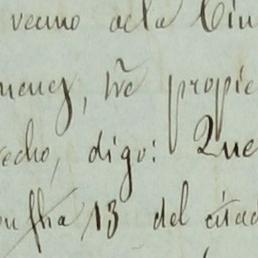 vecino de la Ciu
menez, tre propie
recho, digo: Que
con fha 13 del citad